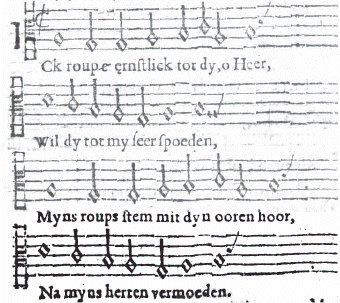 Ck roupe ęrnſtlick tot dy, o Heer,
Wil dy tot my ſeer ſpoeden,
Myns roups ſtem mit dyn ooren hoor,
Na myns herten vermoeden.